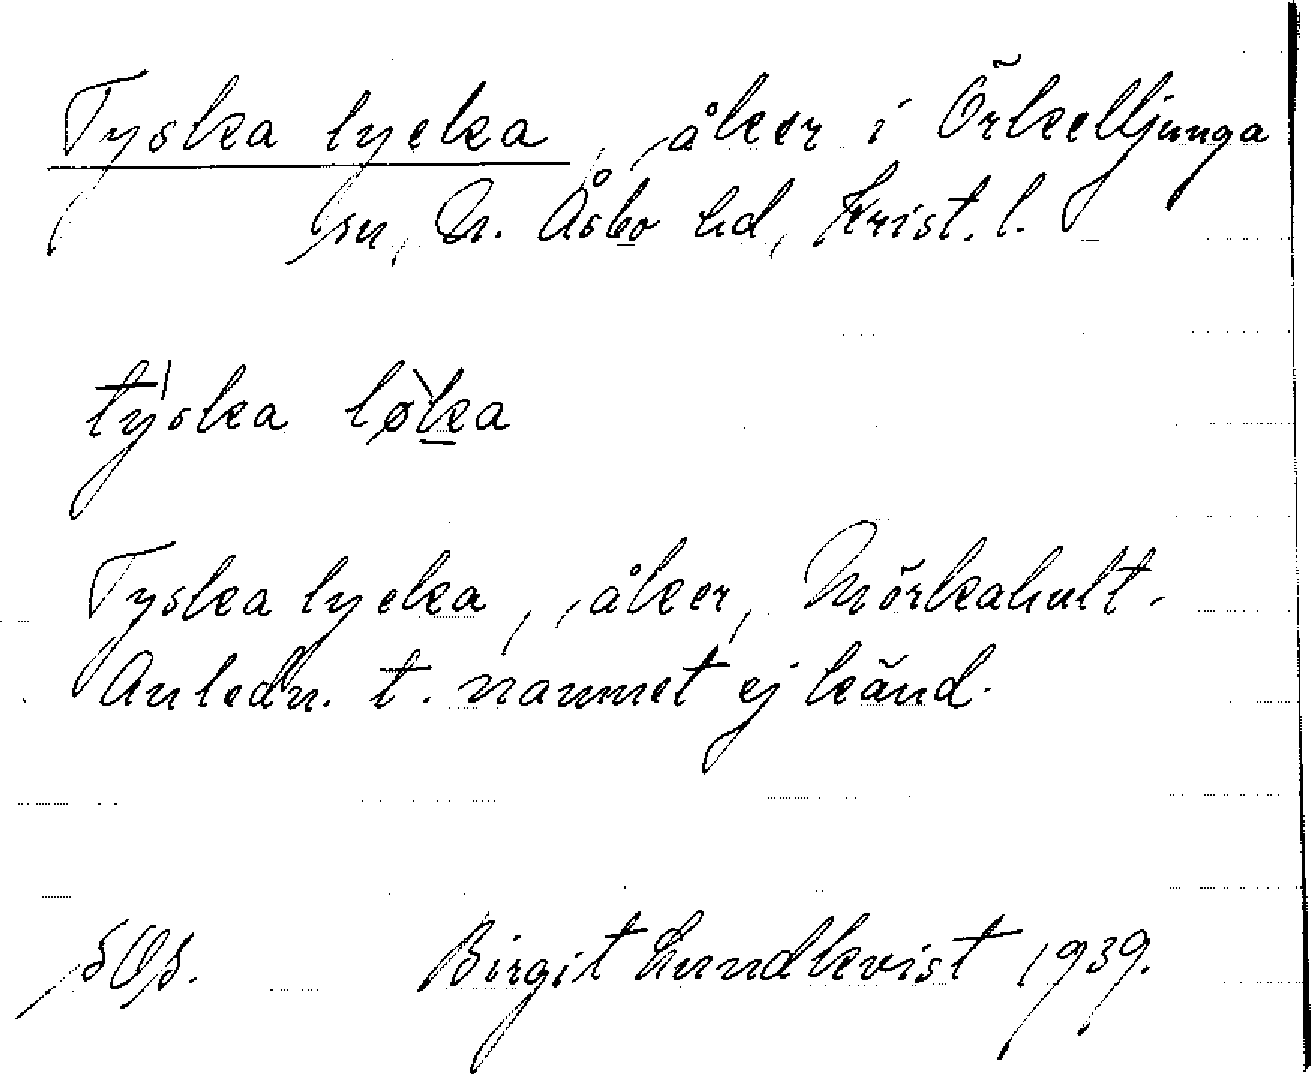 Tyska lycka, åker i Örkelljunga
sn, N. Åsbo hd, Krist. l.
ty̍ska lø̀ka
Tyska lycka, åker, Mörkahult.
Anledn. t. namnet ej känd.
Birgit Lundkvist 1939.